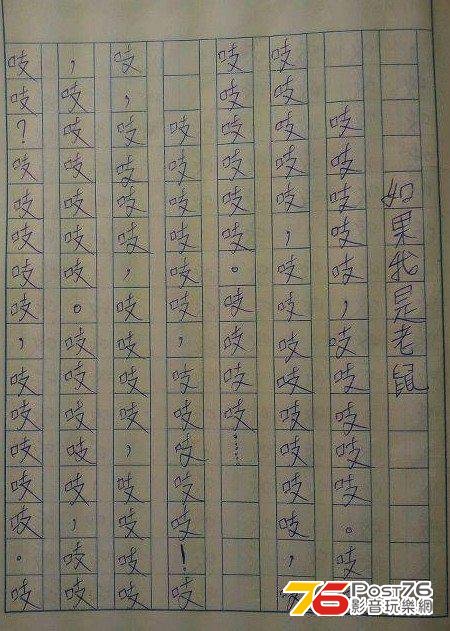 如果我是老鼠
吱吱吱吱吱，吱吱吱吱吱。吱
吱吱吱吱吱，吱吱吱吱吱吱吱吱，吱
吱吱吱吱吱吱。吱吱吱吱……
吱吱吱吱吱吱，吱吱吱吱吱！吱
吱，吱吱吱吱，吱吱吱吱，吱吱吱吱
，吱吱吱吱吱吱。吱吱吱吱吱，吱吱
吱吱？吱吱吱吱吱，吱吱吱吱吱。吱
76 Post76
影音玩樂網